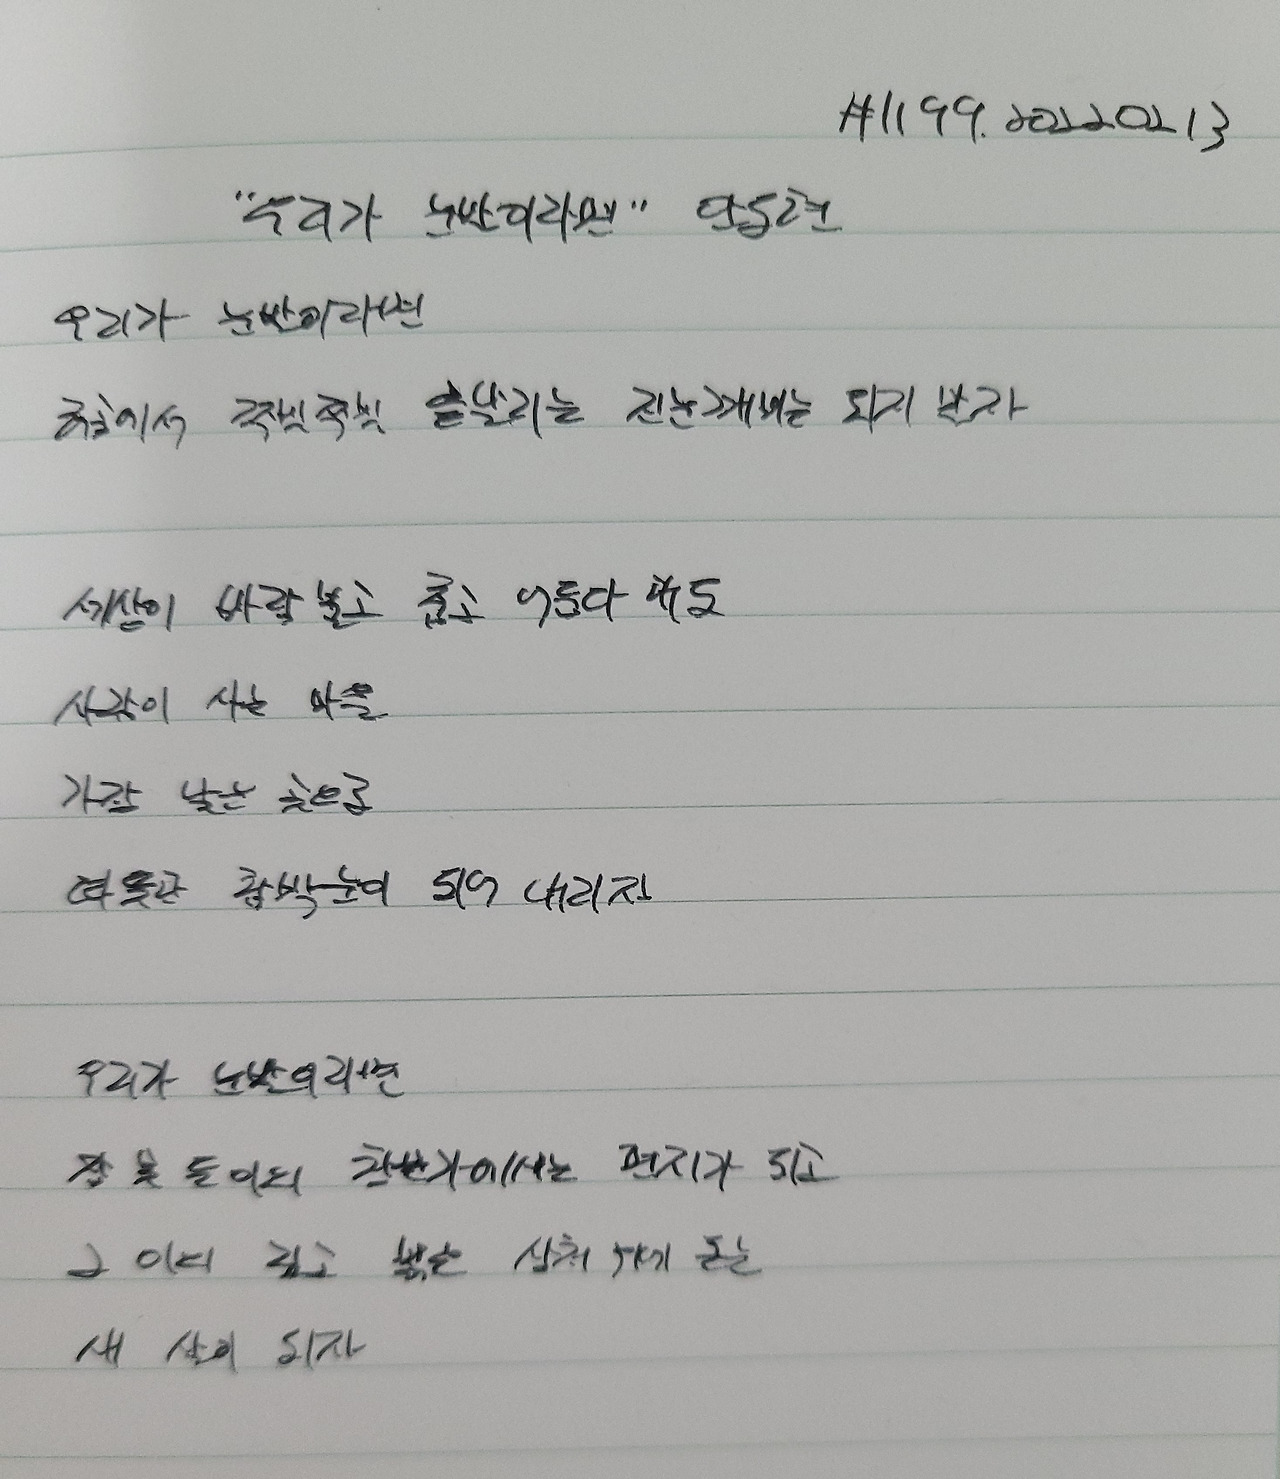 #1199. 20220213
"우리가 눈발이라면" 안도현
우리가 눈발이라면
허공에서 쭉빗쭉빗 흩날리는 진눈개비는 되지 말자
세상이 바람 불고 춥고 어둡다 해도
사람이 사는 마을
가장 낮은 곳으로
따뜻한 함박눈이 되어 내리자
우리가 눈발이라면
잠 못 든 이의 창문가에서는 편지가 되고
그 이의 깊고 붉은 상처 위에 돋는
새 살이 되자